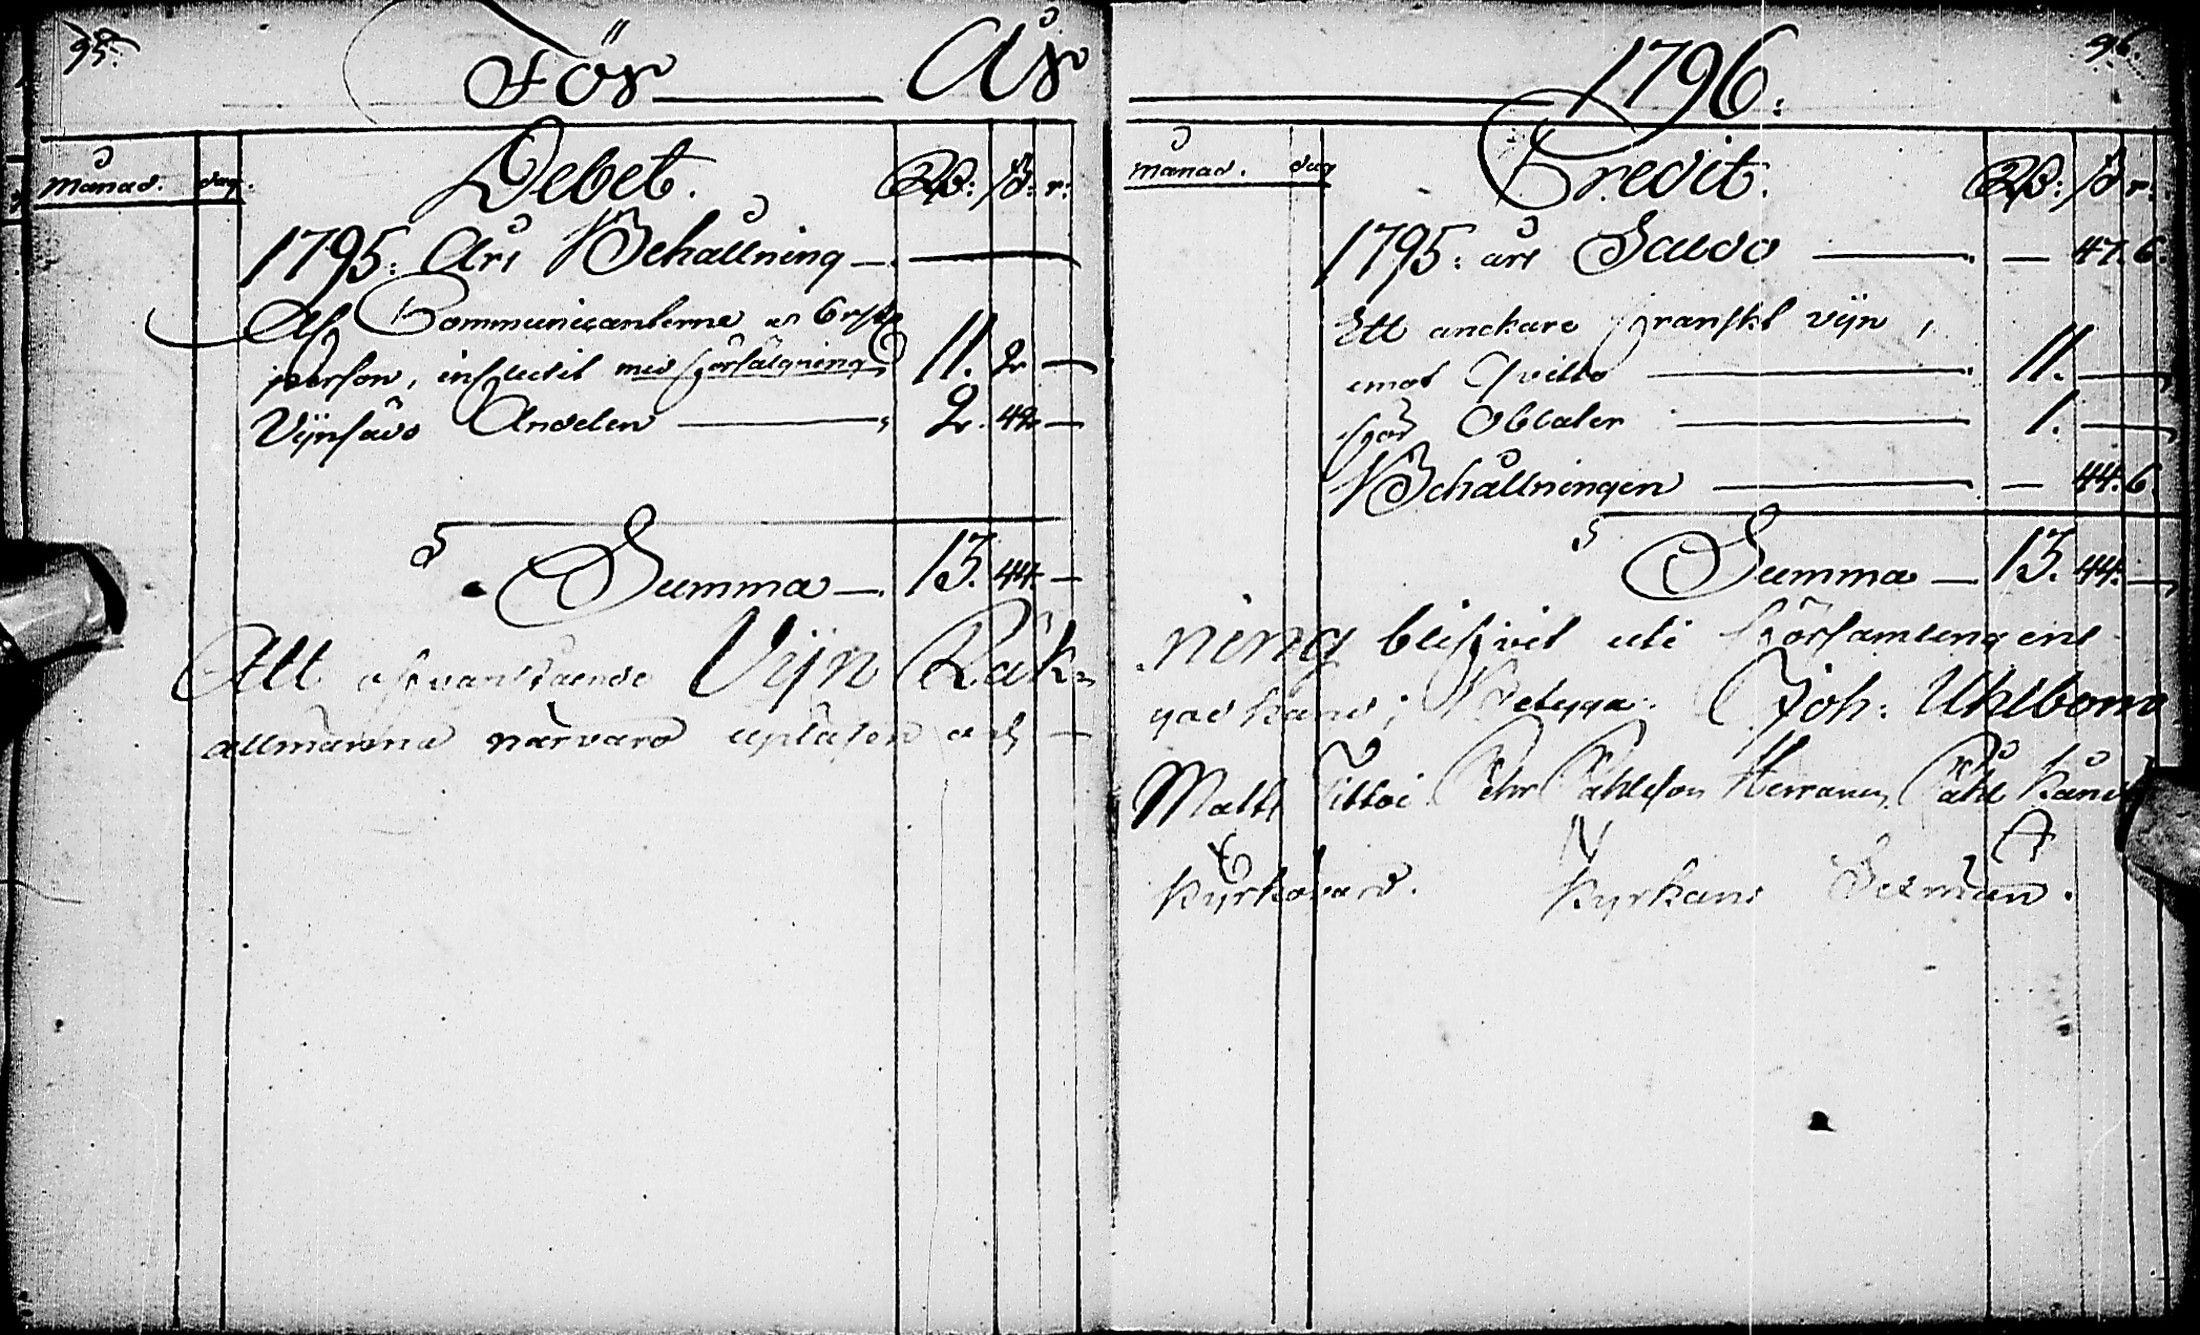 95.
För År
Månad. dag. Debet. Rd: ß: r:
1795: Års Behållning — —
Af Communicanterne a 6 rst
person, influtit med försälgning 11. 2 —
Vijnsäds Andelen — 2. 42 —
Summa — 13. 44 —
Att ofvanstående Vijn Räk=
allmänna närvaro upläsen och —
96.
1796.
Månad. dag Credit. Rd: ß r:
1795: års Saldo — — 47. 6.
Ett anckare franskt vijn,
emot Qvitto — 11. —
för Oblater — 1. —
Behållningen — — 44. 6.
Summa — 13. 44. —
ning blifvit uti församlingens
god känd; Betyga: Joh: Uhlbom
Matts Pehr Påhlsson Herranen, Påhl
Kyrkovärd. Kyrkans Sexmän.